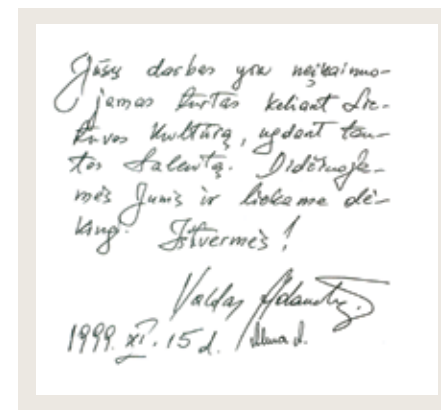 Jūsų darbas yra neįkainuo-
jamas turtas keliant Lie-
tuvos kultūrą, ugdant tau-
tos talentą. Didžiuoja-
mės Jumis ir liekame dė-
kingi. Ištvermės!
Valdas Adamkus
1999. XI. 15 d. Alma A.